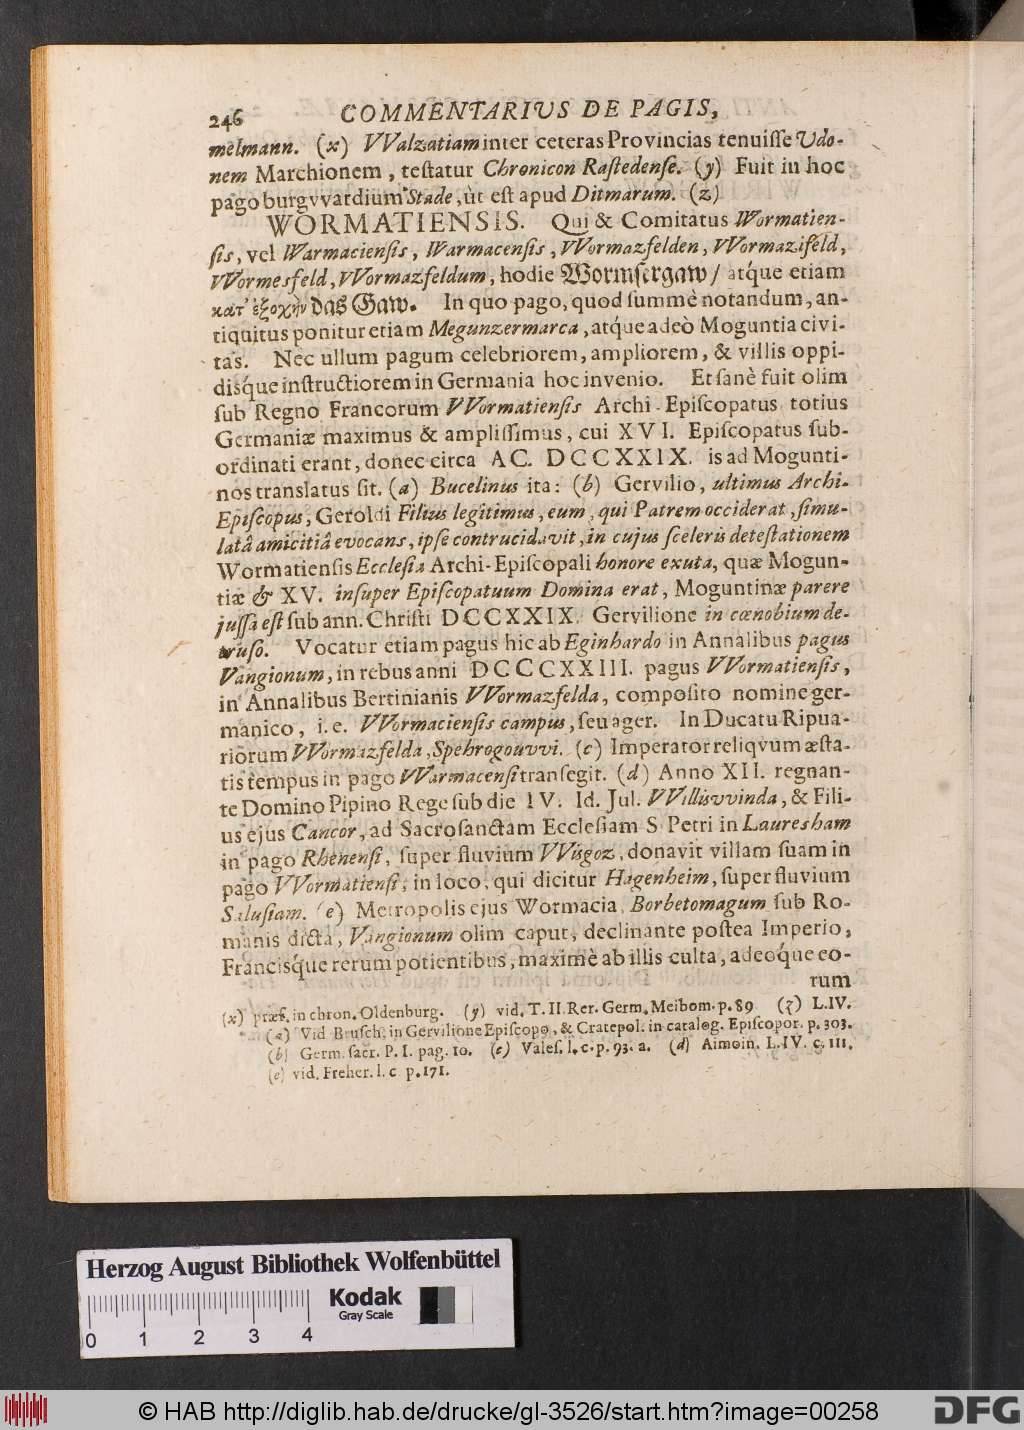 246 COMMENTARIVS DE PAGIS,
melmann. (x) VValzatiam inter ceteras Provincias tenuiſſe Udo-
nem Marchionem, teſtatur Chronicon Raſtedenſe. (y) Fuit in hoc
pago burgvvardium Stade, ùt eſt apud Ditmarum. (z)
WORMATIENSIS. Qui & Comitatus Wormatien-
ſis, vel Warmacienſis, Warmacenſis, VVormazfelden, VVormazifeld,
VVormesfeld, VVormazfeldum, hodie Wormſergaw / atq́ue etiam
κατ' ἐξοχὴν das Gaw. In quo pago, quod ſummè notandum, an-
tiquitus ponitur etiam Megunzermarca, atq́ue adeò Moguntia civi-
tas. Nec ullum pagum celebriorem, ampliorem, & villis oppi-
disq́ue inſtructiorem in Germania hoc invenio. Et ſanè fuit olim
ſub Regno Francorum VVormatienſis Archi-Epiſcopatus totius
Germaniæ maximus & ampliſſimus, cui XVI. Epiſcopatus ſub-
ordinati erant, donec circa AC. DCCXXIX. is ad Mogunti-
nos translatus ſit. (a) Bucelinus ita: (b) Gervilio, ultimus Archi-
Epiſcopus, Geroldi Filius legitimus, eum, qui Patrem occiderat, ſimu-
latâ amicitiâ evocans, ipſe contrucidavit, in cujus ſceleris deteſtationem
Wormatienſis Eccleſia Archi-Epiſcopali honore exuta, quæ Mogun-
tiæ & XV. inſuper Epiſcopatuum Domina erat, Moguntinæ parere
juſſa eſt ſub ann. Chriſti DCCXXIX. Gervilione in cœnobium de-
truſo. Vocatur etiam pagus hic ab Eginhardo in Annalibus pagus
Vangionum, in rebus anni DCCCXXIII. pagus VVormatienſis,
in Annalibus Bertinianis VVormazfelda, compoſito nomine ger-
manico, i. e. VVormacienſis campus, ſeu ager. In Ducatu Ripua-
riorum VVormazfelda, Spehrogouvvi. (c) Imperator reliqvum æſta-
tis tempus in pago VVarmacenſi tranſegit. (d) Anno XII. regnan-
te Domino Pipino Rege ſub die IV. Id. Jul. VVillisvvinda, & Fili-
us ejus Cancor, ad Sacroſanctam Eccleſiam S. Petri in Lauresham
in pago Rhenenſi, ſuper fluvium VVisgoz, donavit villam ſuam in
pago VVormatienſi, in loco, qui dicitur Hagenheim, ſuper fluvium
Saluſiam. (e) Metropolis ejus Wormacia, Borbetomagum ſub Ro-
manis dicta, Vangionum olim caput, declinante poſtea Imperio,
Francisq́ue rerum potientibus, maximè ab illis culta, adeoq́ue eo-
rum
(x) præf. in chron. Oldenburg. (y) vid. T. II. Rer. Germ. Meibom. p. 89 (z) L. IV.
(a) Vid Bruſch. in Gervilione Epiſcopo, & Cratepol. in catalog. Epiſcopor. p. 303.
(b) Germ. ſacr. P. I. pag. 10. (c) Valeſ. l. c. p. 93. a. (d) Aimoin. L. IV. c. 111.
(e) vid. Freher. l. c p. 171.
Herzog August Bibliothek Wolfenbüttel
Kodak
Gray Scale
0 1 2 3 4
© HAB http://diglib.hab.de/drucke/gl-3526/start.htm?image=00258
DFG